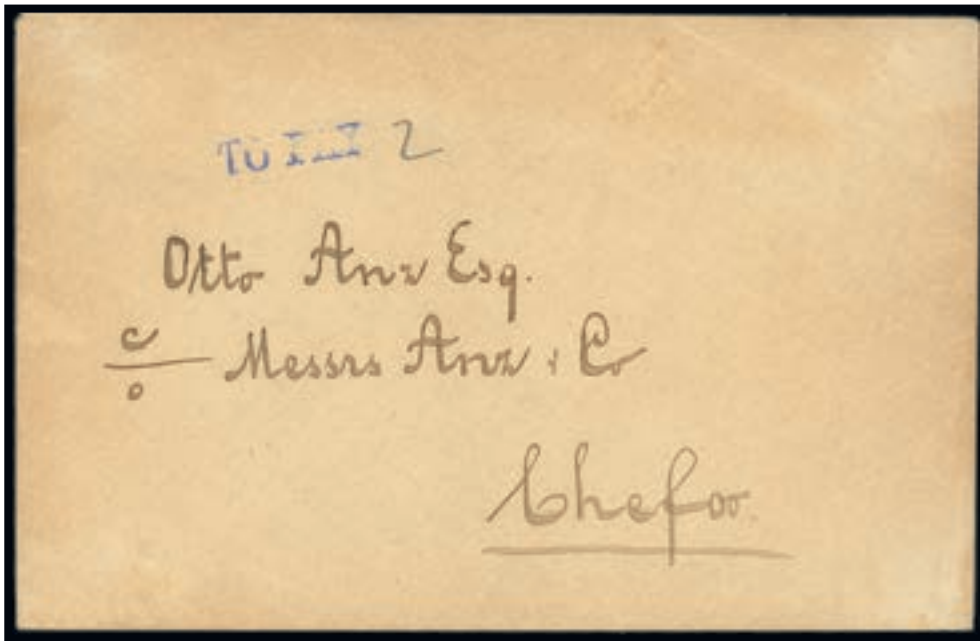 2
Otto Anz Esq.
c/o Messrs Anz & Co
Chefoo.